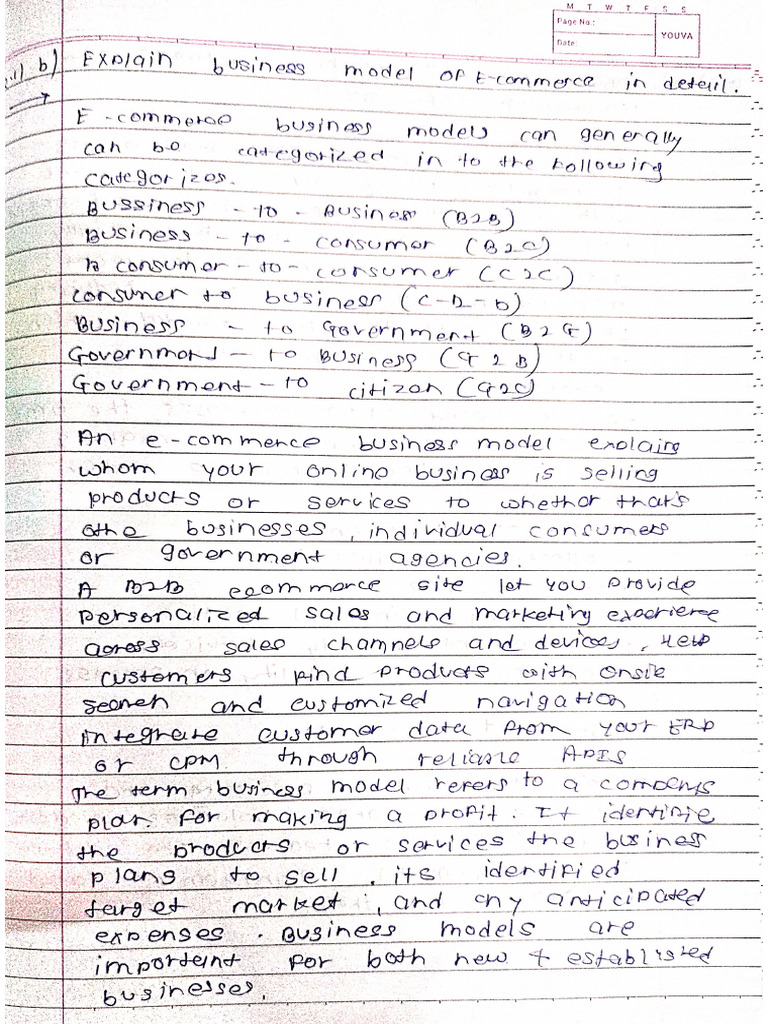 M T W T F S S
Page No.:
YOUVA
Date:
b) Explain business model of E-commerce in deteril.
E-commerce business models can generally
can be categorized in to the following
categorizes.
Bussiness - to - Business (B2B)
Business - to - consumer (B2C)
consumer - to - consumer (C2C)
consumer to business (C-2-b)
Business - to Government (B2G)
Government - to Business (G2B)
Government - to citizen (G2C)
An e-commence business model explains
whom your online business is selling
products or services to whether that's
othe businesses, individual consumers
or government agencies.
A B2B ecommerce site let you provide
personalized sales and marketing experience
across sales channels and devices, Help
customers find products with onsite
search and customized navigation
Integrate customer data from your ERP
or CPM through reliable APIs
The term business model refers to a companys
plan for making a profit. It identifie
the products or services the business
plans to sell, its identified
target market, and any anticipated
expenses. Business models are
important for both new + established
businesses.